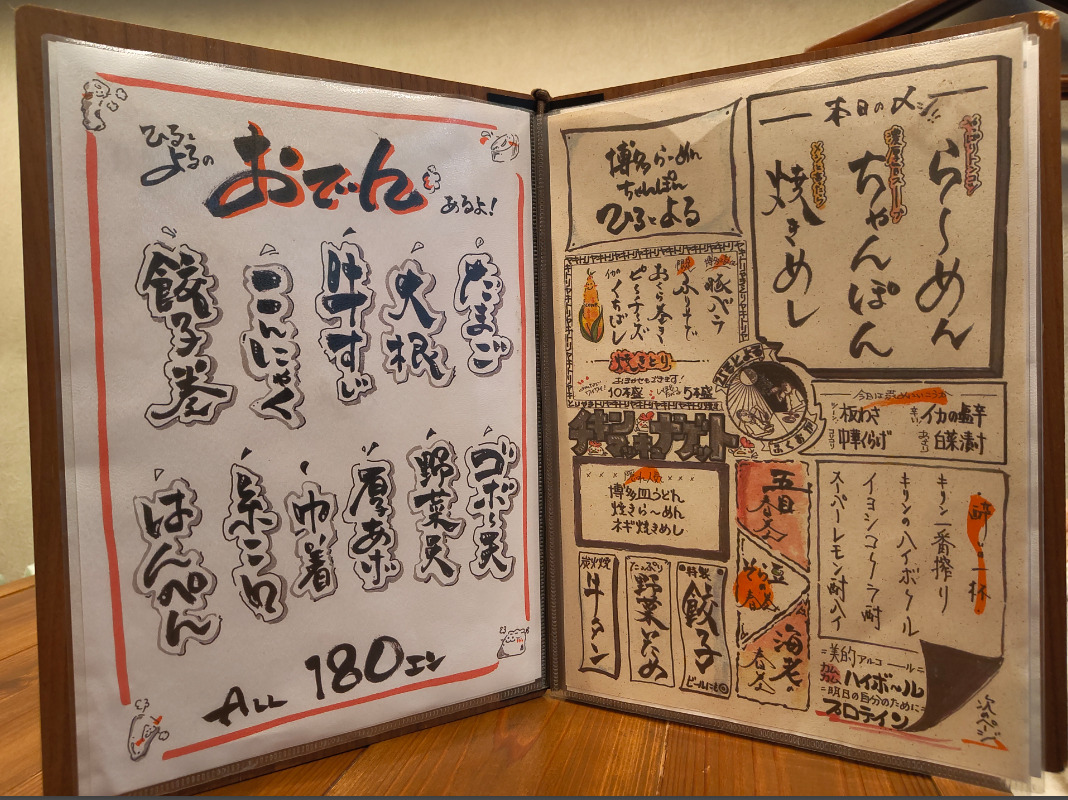 ひると
よるの
おでん
あるよ!
たまご
大根
牛すじ
こんにゃく
餃子巻
ゴボー天
野菜天
厚あげ
巾着
糸こん
はんぺん
ALL 180エン
博多らーめん
ちゃんぽん
ひるとよる
本日のメシ
らーめん
濃厚スープ
ちゃんぽん
焼きめし
豚バラ
おくら巻き
ピーチーズ
くちばし
焼きとり
10本盛
5本盛
チキン
マッキーナゲット
板わさ
中華くらげ
イカの塩辛
白菜漬け
博多皿うどん
焼きらーめん
ネギ焼きめし
炭火焼
牛タン
たっぷり
野菜いため
特製
餃子
ビールにも◎
五目
春巻
そら豆
春巻
海老
春巻
酔・一杯
キリン一番搾り
キリンのハイボール
スーパーレモン酎ハイ
=美的アルコール=
ハイボ〜ル
=明日の自分のために=
プロテイン
次のページへ